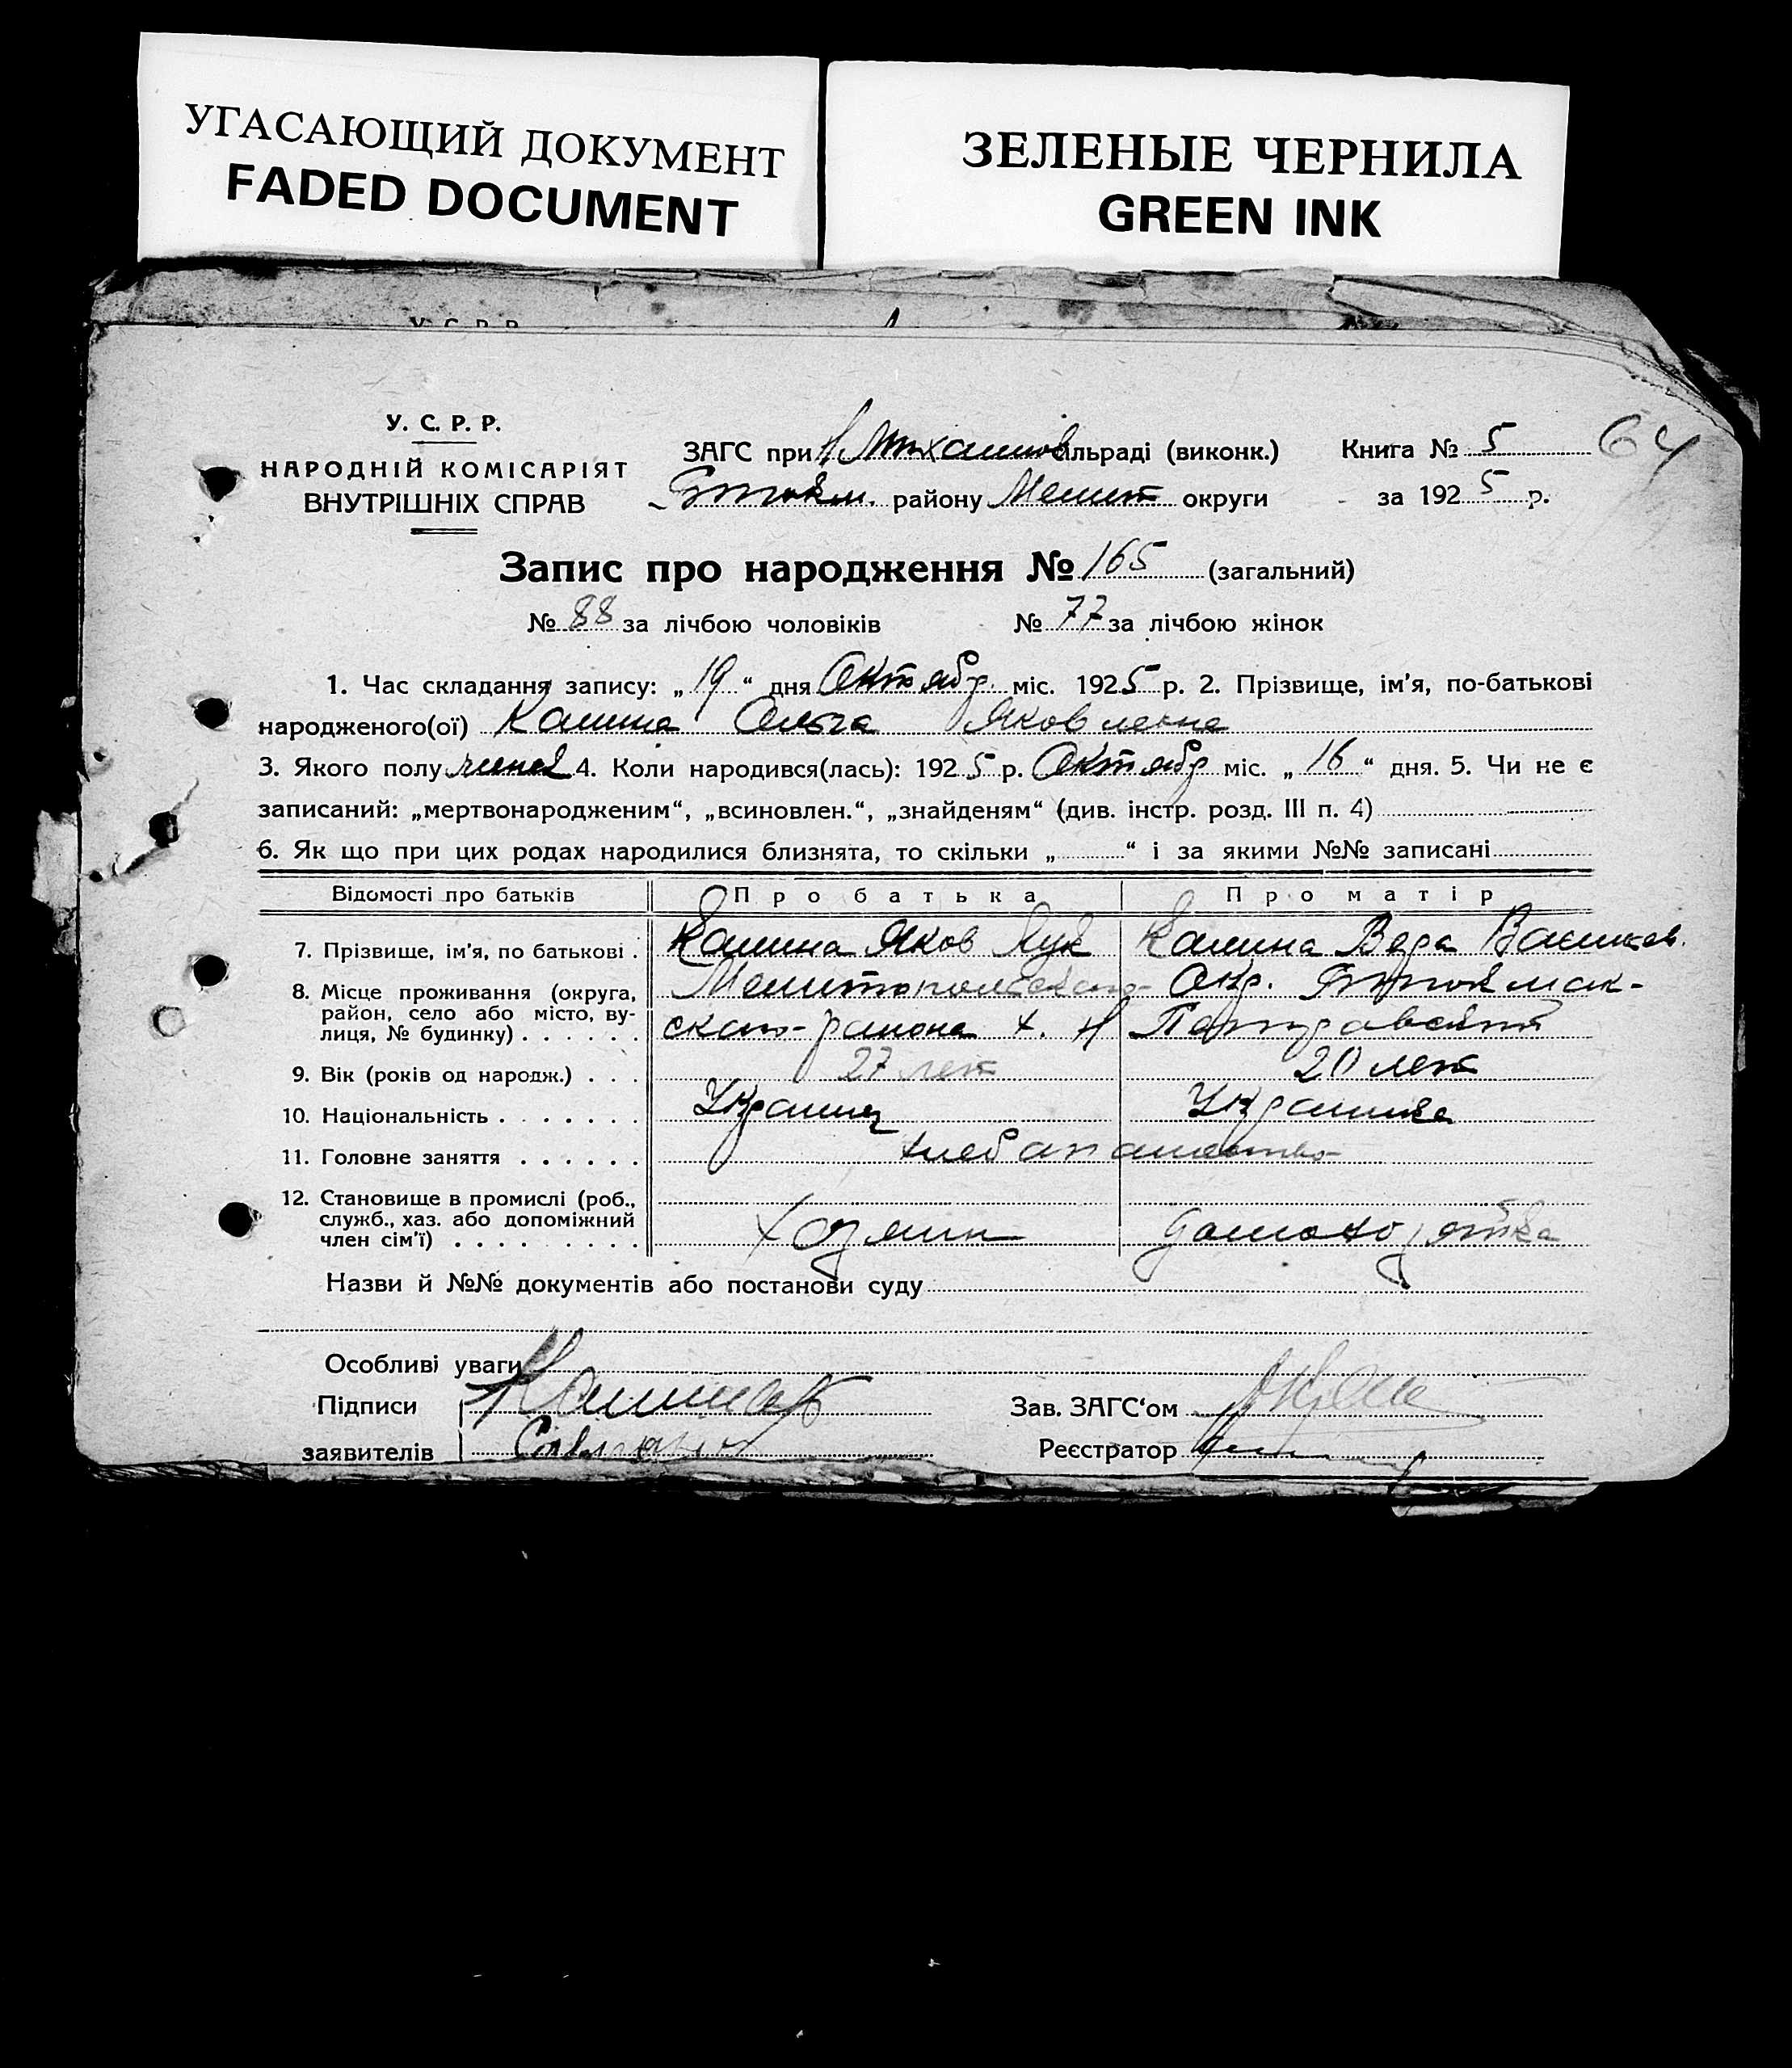 УГАСАЮЩИЙ ДОКУМЕНТ
FADED DOCUMENT
ЗЕЛЕНЫЕ ЧЕРНИЛА
GREEN INK
У. С. Р. Р.
НАРОДНІЙ КОМІСАРІЯТ
ВНУТРІШНІХ СПРАВ
ЗАГС при Н Михайлов ільраді (виконк.)
району Мелит округи
Книга № 5
за 1925 р.
64
Запис про народження № 165 (загальний)
№ 88 за лічбою чоловіків № 77 за лічбою жінок
1. Час складання запису: „19“ дня Октябр. міс. 1925 р. 2. Прізвище, ім'я, по-батькові
народженого(ої) Калина Ольга Яковлевна
3. Якого полу 4. Коли народився(лась): 1925 р. Октябр міс. „16“ дня. 5. Чи не є
записаний: „мертвонародженим“, „всиновлен.“, „знайденям“ (див. інстр. розд. III п. 4)
6. Як що при цих родах народилися близнята, то скільки „ “ і за якими №№ записані
Відомості про батьків Про батька Про матір
7. Прізвище, ім'я, по батькові . Калина Яков Лук Калина Вера Васильев.
8. Місце проживання (округа, район, село або місто, вулиця, № будинку) . . . . . . Мелитопольского Окр. Б.Токмак-
ского района х. Н
9. Вік (років од народж.) . . . 27 лет 20 лет
10. Національність . . . . . . . Украинец Украинка
11. Головне заняття . . . . . . хлебопашество
12. Становище в промислі (роб., служб., хаз. або допоміжний член сім'ї) . . . . . . . . . Хозяин домохозяйка
Назви й №№ документів або постанови суду
Особливі уваги
Підписи Калина Зав. ЗАГС'ом
заявителів Реєстратор